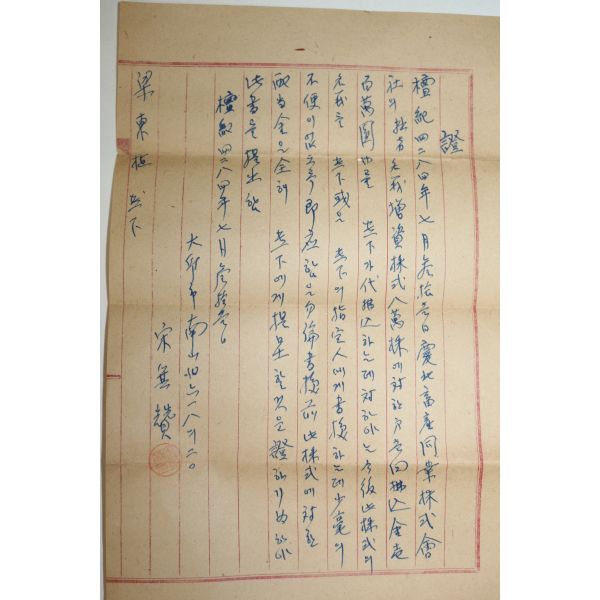 證
檀紀四二八四年七月參拾壹日慶北畜産同業株式會
社의 拙者名義增資株式八萬株에 對한 第壹回拂込金壹
百萬圓也를 貴下가 代拂込하는데 對하야는 今後 此株式의
名義를 貴下 或은 貴下의 指定人에게 書換하는데 少毫의
不便이 없도록 即應함은 勿論 書換前 此株式에 對한
配當金은 全部 貴下에게 提呈할것을 證하기 爲하야
此書를 提出함
檀紀四二八四年七月參拾壹日
大邱市南山洞六一八의二〇
宋 贊
梁東植 貴下